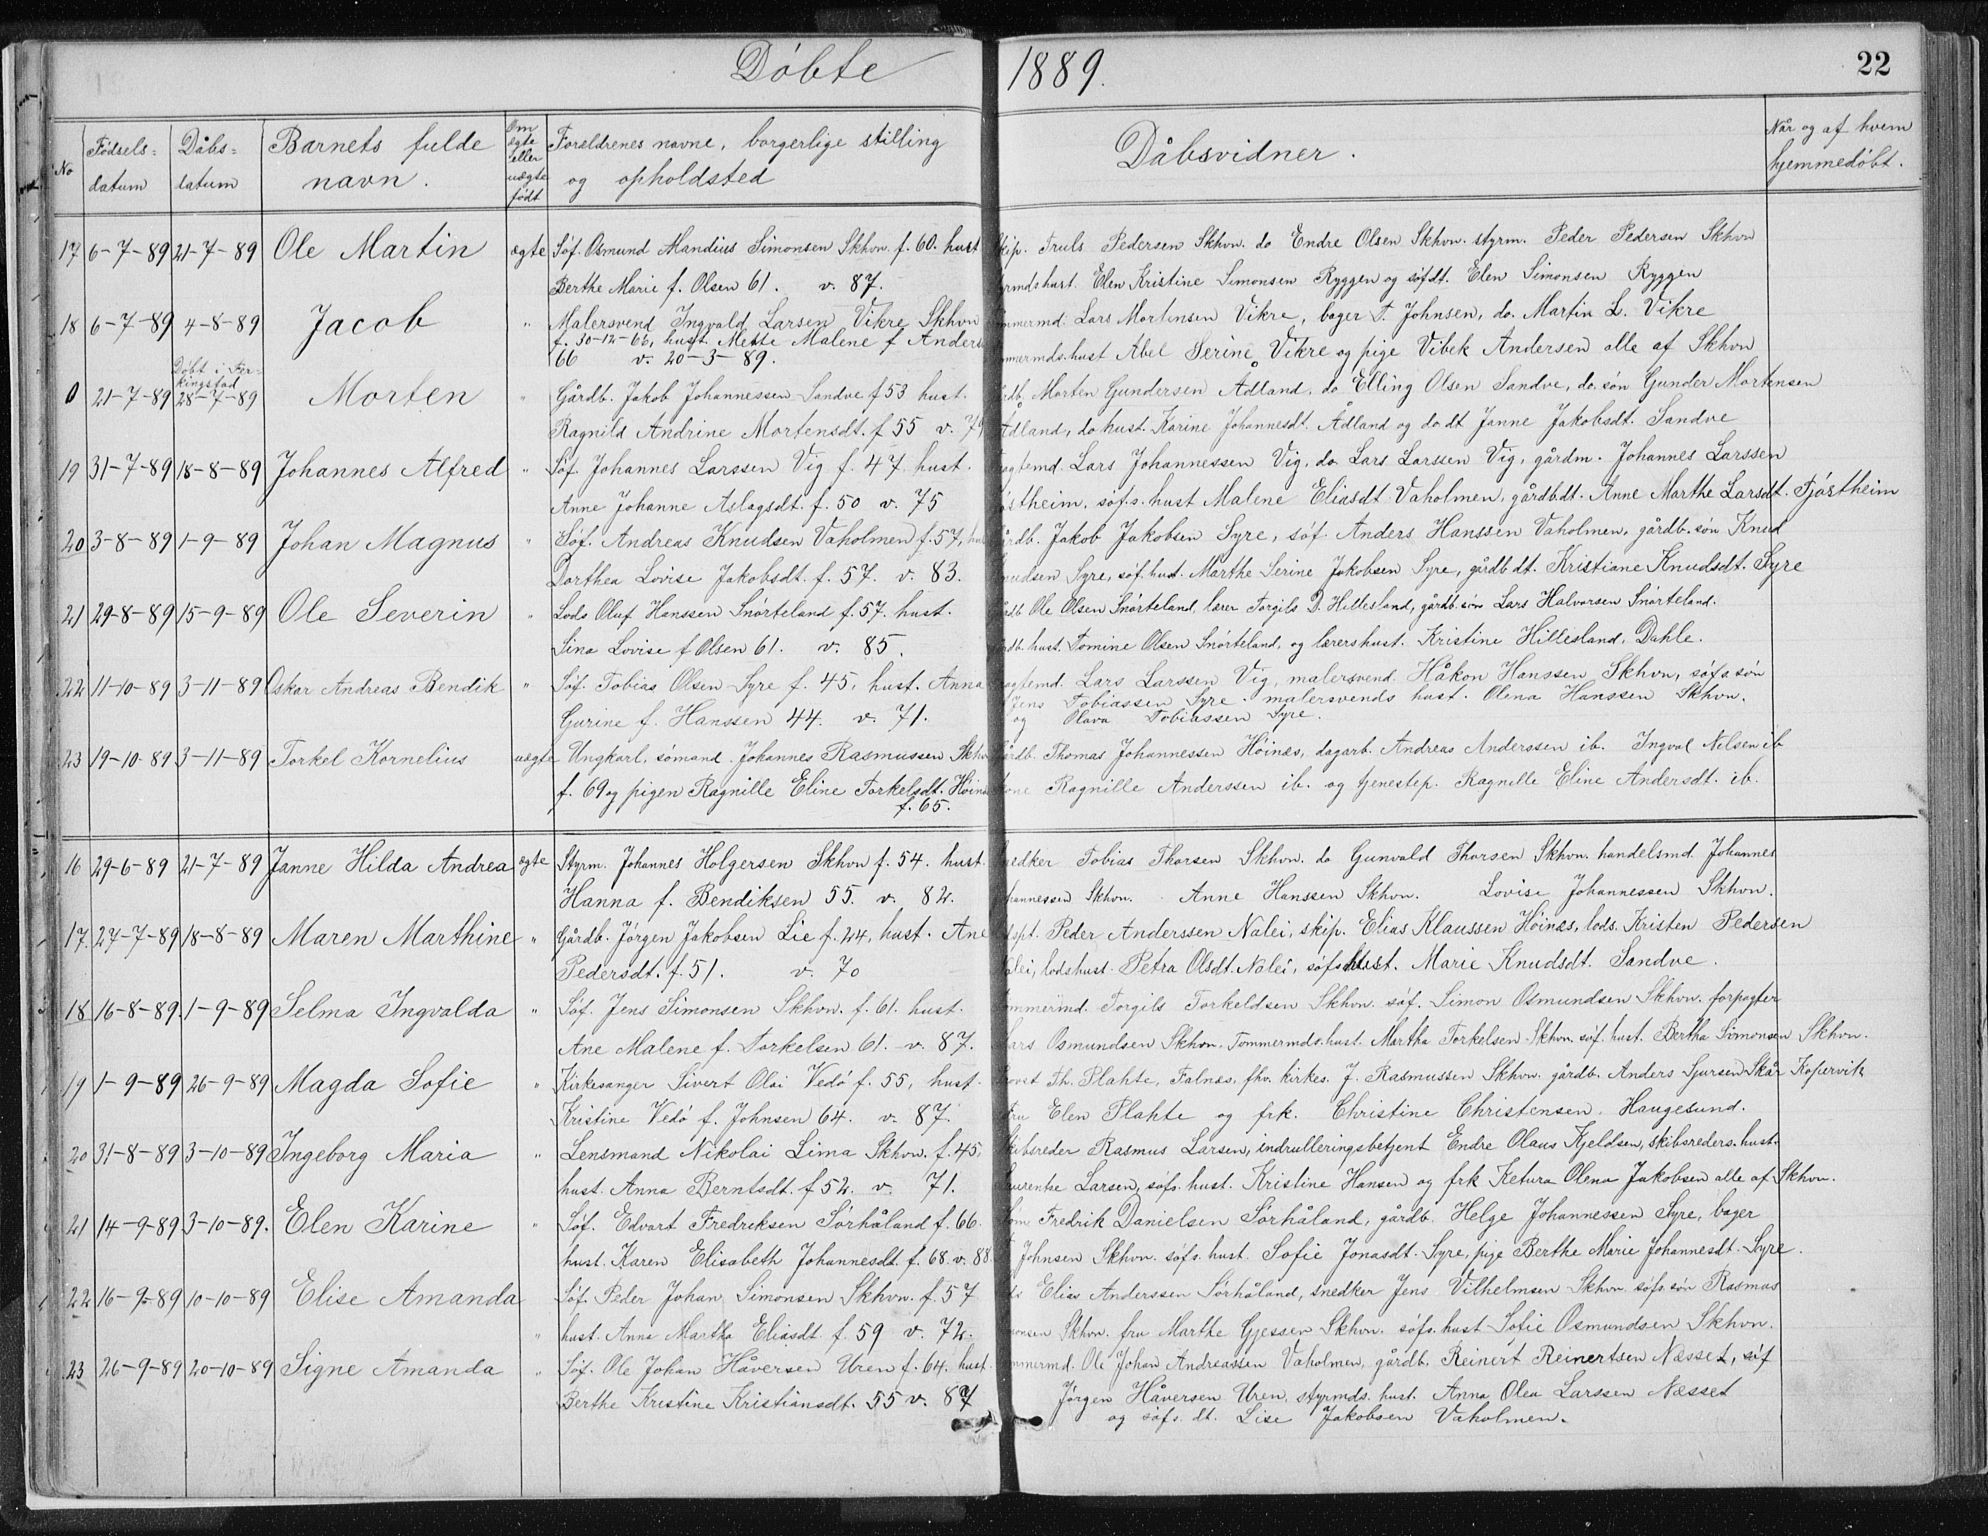 Döbte 1889. 22
No Fødsels=datum Dåbs=datum Barnets fulde navn. Om ægte eller uægte født Forældrenes navne, borgerlige stilling og opholdsted Dåbsvidner. Når og af hvem hjemmedøbt.
17 6-7-89 21-7-89 Ole Martin ægte Søf. Osmund Mandius Simonsen Skhvn. f. 60. hust Truls Pedersen Skhvn. do Endre Olsen Skhvn. styrm. Peder Pedersen Skhvn
Berthe Marie f. Olsen 61. v. 87. Elen Kristine Simonsen Ryggen og søf.dt. Elen Simonsen Ryggen
18 6-7-89 4-8-89 Jacob " Malersvend Ingvald Larsen Vikre Skhvn Lars Mortensen Vikre, bager T. Johnsen, do. Martin L. Vikre
f. 30-12-66, hust. Mette Malene f Anders
66 v. 20-3-89. hust Abel Serine Vikre og pige Vibek Andersen alle af Skhvn
Døbt i Fer-
kingstad
0 21-7-89 28-7-89 Morten " Gårdb. Jakob Johannessen Sandve f 53 hust. Morten Gundersen Ådland, do Elling Olsen Sandve, do. søn Gunder Mortensen
Ragnild Andrine Mortensdt. f 55 v. 79 Ådland, do hust. Karine Johannesdt. Ådland og do dt Janne Jakobsdt. Sandve
19 31-7-89 18-8-89 Johannes Alfred " Søf. Johannes Larssen Vig f. 47. hust. Lars Johannessen Vig, do Lars Larssen Vig, gårdm. Johannes Larssen
Anne Johanne Aslagsdt. f. 50 v. 75 søfs. hust Malene Eliasdt. Vaholmen, gårdb.dt. Anne Marthe Larsdt. Fjøstheim
20 3-8-89 1-9-89 Johan Magnus " Søf. Andreas Knudsen Vaholmen f. 57, Jakob Jakobsen Syre, søf. Anders Hanssen Vaholmen, gårdb. søn Knud
Dorthea Lovise Jakobsdt. f. 57. v. 83. Knudsen Syre, søf. hust. Marthe Serine Jakobsen Syre, gårdb dt. Kristiane Knudsdt. Syre
21 29-8-89 15-9-89 Ole Severin " Lods Oluf Hanssen Snørteland f. 57. hust. Ole Olsen Snørteland, lærer Torgils D. Hillesland, gårdb. søn Lars Halvorsen Snørteland.
Sina Lovise f Olsen 61. v. 85. hust. Tomine Olsen Snørteland, og lærers hust. Kristine Hillesland, Dahle.
22 11-10-89 3-11-89 Oskar Andreas Bendik " Søf. Tobias Olsen Syre f. 45, hust. Anna Lars Larssen Vig, malersvend. Håkon Hanssen Skhvn, søfs. søn
Gurine f. Hanssen 44. v. 71. Jens Tobiassen Syre. malersvends hust. Olena Hanssen Skhvn.
og Olava Tobiassen Syre.
23 19-10-89 3-11-89 Torkel Kornelius uægte Ungkarl, sømand. Johannes Rasmussen Skhvn Gårdb. Thomas Johannessen Høinæs, dagarb. Andreas Anderssen ib. Ingval Nelsen ib
f. 69 og pigen Ragnille Eline Torkelsdt. Høinæs Ragnille Anderssen ib. og tjenestep. Ragnille Eline Andersdt. ib.
f. 65.
16 29-6-89 21-7-89 Janne Hilda Andrea ægte Styrm. Johannes Holgersen Skhvn f. 54. hust. Tobias Thorsen Skhvn. do Gunvald Thorsen Skhvn. handelsmd. Johannes
Hanna f. Bendiksen 55. v. 82. Johannessen Skhvn. Anne Hanssen Skhvn. Lovise Johannessen Skhvn.
17. 27-7-89 18-8-89 Maren Marthine " Gårdb. Jørgen Jakobsen Lie f. 44, hust. Ane Peder Anderssen Nalei, skip. Elias Klaussen Høines, lods. Kristen Pedersen
Pedersdt. f. 51. v. 70 Nalei, lods hust. Petra Olsdt. Nalei, søfs. hust. Marie Knudsdt. Sandve.
18 16-8-89. 1-9-89 Selma Ingvalda " Søf. Jens Simonsen Skhvn. f. 61. hust. Torgils Torkeldsen Skhvn. søf. Simon Osmundsen Skhvn. forpagter
Ane Malene f. Torkelsen 61. v. 87. Lars Osmundsen Skhvn. Tommermds. hust. Martha Torkelsen Skhvn. søf. hust. Bertha Simonsen Skhvn.
19 1-9-89 26-9-89 Magda Sofie " Kirkesanger Sivert Olai Vedø f. 55, hust. Provst Th. Plahte, Falnes, fhv. kirkes. J. Rasmussen Skhvn. gårdb. Anders Sjursen Skår Kopervik
Kristine Vedø f. Johnsen 64. v. 87. Fru Elen Plahte og frk. Christine Christensen. Haugesund.
20 31-8-89 3-10-89 Ingeborg Maria " Lensmand Nikolai Lima Skhvn. f. 45, Skibsreder Rasmus Larsen, indrulleringsbetjent Endre Olaus Kjeldsen, skibsreders. hust.
hust. Anna Berntsdt. f 52. v. 71. Laurentze Larsen, søfs. hust. Kristine Hansen og frk Ketura Olena Jakobsen alle af Skhvn.
21 14-9-89 3-10-89. Elen Karine " Søf. Edvart Fredriksen Sørhåland f. 66. Fredrik Danielsen Sørhåland, gårdb. Helge Johannessen Syre, bager
hust. Karen Elisabeth Johannesdt. f. 68. v. 88. T. Johnsen Skhvn. søfs. hust. Sofie Jonasdt. Syre, pige Berthe Marie Johannesdt. Syre.
22 16-9-89 10-10-89 Elise Amanda Søf. Peder Johan Simonsen Skhvn. f. 57 Elias Anderssen Sørhåland, snedker Jens Vilhelmsen Skhvn. søfs. søn Rasmus
" hust. Anna Martha Eliasdt f. 59 v. 72. Skhvn. fru Marthe Gjessen Skhvn. søfs. hust Sofie Osmundsen Skhvn.
23 26-9-89 20-10-89 Signe Amanda " Søf. Ole Johan Håversen Uren f. 64. hust. Ole Johan Andreassen Vaholmen, gårdb. Reinert Reinertsen Næsset, søf
Berthe Kristine Kristiansdt. 55 v. 87 Jørgen Håversen Uren. styrmds. hust. Anna Olea Larssen Næsset
og søfs. dt. Lise Jakobsen Vaholmen.